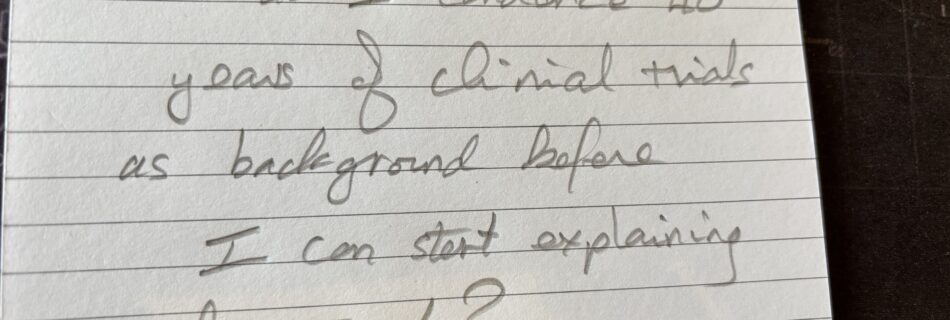 years of clinial trials
as background before
I can start explaining
?